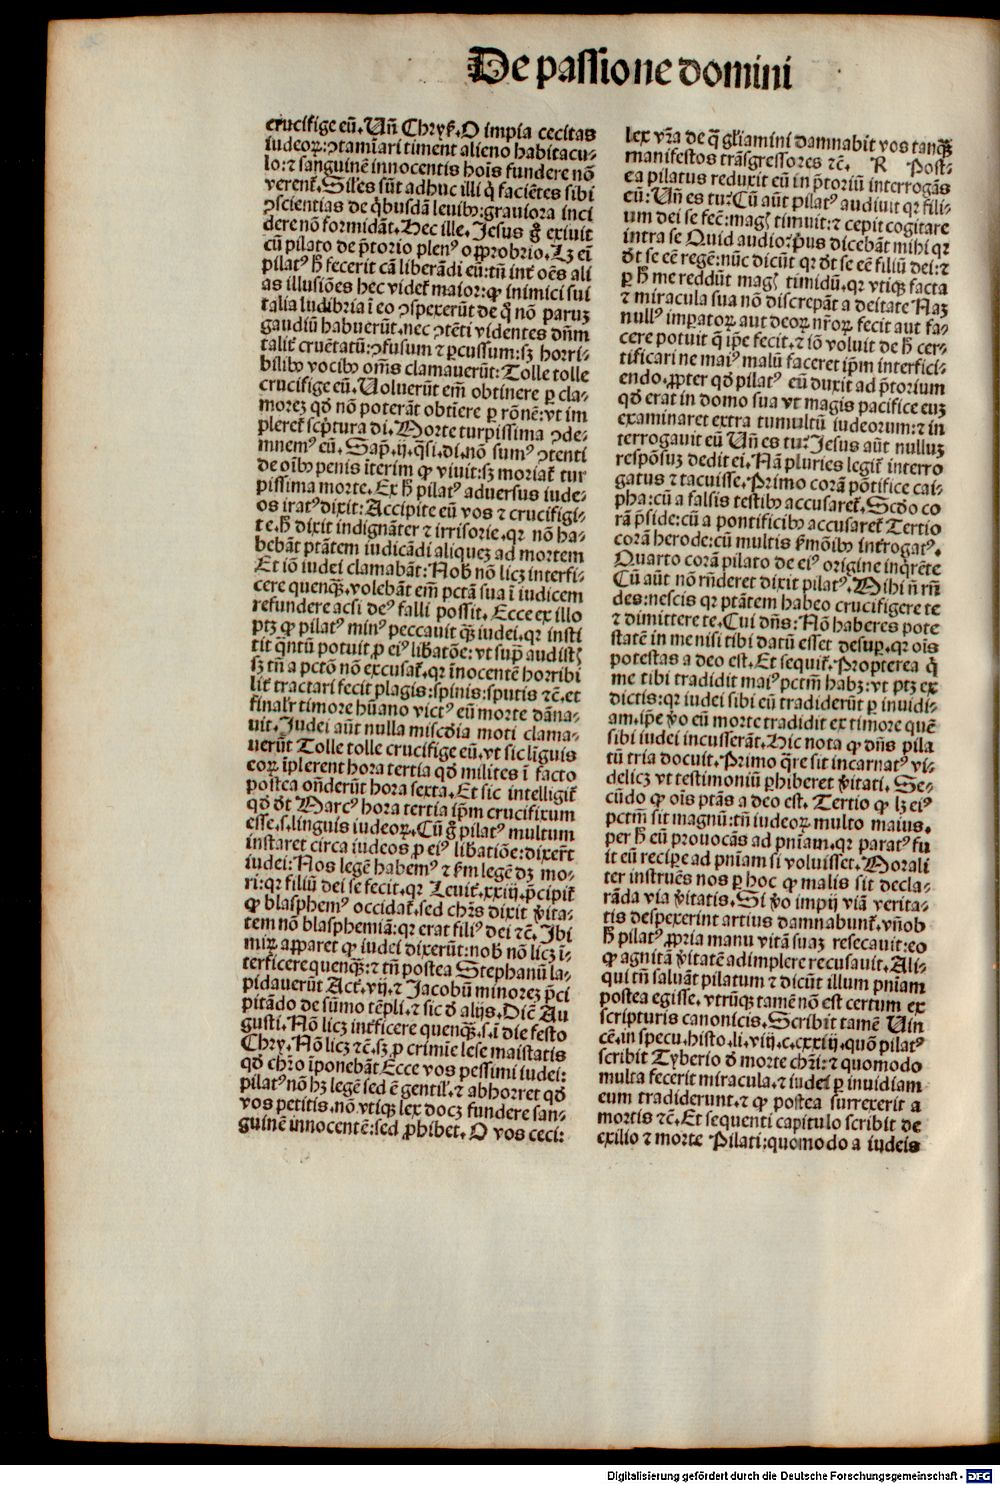 De passione domini
crucifige eū. Uñ Chryſ. O impia cecitas
iudeoꝝ: ↄtamīari timent alieno habitacu-
lo: ⁊ sanguinē innocentis hoīs fundere nō
verent̄. Siles sūt adhuc illi q̇ faciētes sibi
ↄscientias de q̇busdā leuibꝰ: grauiora inci
dere nō formidāt. Hec ille. Jesus g̊ exiuit
cū pilato de p̄torio plenꝰ opprobrio. Lꝫ eī
pilatꝰ h̄ fecerit cā liberādi eū: tn̄ int̄ oēs ali
as illusiōes hec videt̄ maior: ꝙ inimici sui
talia ludibria ī eo ↄspexerūt de q̄ nō paruꝫ
gaudiū habuerūt. nec ↄtēti videntes dn̄m
talit̄ cruētatū: ↄfusum ⁊ ꝑcussum: sꝫ horri-
bilibꝰ vocibꝰ om̄s clamauerūt: Tolle tolle
crucifige eū. Uoluerūt em̄ obtinere ꝑ cla-
moreꝫ qḋ nō poterāt obtīere ꝑ rōnē: vt im
pleret̄ scp̄tura di. Morte turpissima ↄde-
mnemꝰ eū. Sap̄. ij. q̄si. di. nō sumꝰ ↄtenti
de oībꝰ penis īterim ꝙ viuit: sꝫ moriat̄ tur
pissima morte. Ex h̄ pilatꝰ aduersus iude-
os iratꝰ dixit: Accipite eū vos ⁊ crucifigi-
te. h̄ dixit indignāter ⁊ irrisorie. qꝛ nō ha-
bebāt ptātem iudicādi aliqueꝫ ad mortem
Et iō iudei clamabāt: Nob̄ nō licꝫ interfi-
cere quenqꝫ. volebāt em̄ pctā sua ī iudicem
refundere acsi deꝰ falli possit. Ecce ex illo
ptꝫ ꝙ pilatꝰ minꝰ peccauit qꝫ iudei. qꝛ insti
tit q̄ntū potuit ꝓ eiꝰ libatōe: vt sup̄ audistꝭ
sꝫ tn̄ a pctō nō excusat̄. qꝛ īnocentē horribi
lit̄ tractari fecit plagis: spinis: sputis ⁊c̄. et
finalr̄ timore hūano victꝰ eū morte dāna-
uit. Judei aūt nulla miscd̄ia moti clama-
uerūt Tolle tolle crucifige eū. vt sic līguis
eoꝝ īplerent hora tertia qḋ milites ī facto
postea on̄derūt hora sexta. Et sic intelligit̄
qḋ dt̄ Marcꝰ hora tertia ip̄m crucifixum
esse. s. linguis iudeoꝝ. Cū g̊ pilatꝰ multum
instaret circa iudeos ꝓ eiꝰ libatiōe: dixer̄t
iudei: Nos legē habemꝰ ⁊ ẜm legē dꝫ mo-
ri: qꝛ filiū dei se fecit. qꝛ Leuit̄. xxiij. p̄cipit̄
ꝙ blasphemꝰ occidat̄. sed chr̄s dixit v̊ita-
tem nō blasphemiā: qꝛ erat filiꝰ dei ⁊c̄. Ibi
miꝝ apparet ꝙ iudei dixerūt: nob̄ nō licꝫ ī-
terficere quenqꝫ: ⁊ tn̄ postea Stephanū la-
pidauerūt Act̄. vij. ⁊ Jacobū minoreꝫ p̄ci
pitādo de sūmo tēpli. ⁊ sic ḋ alijs. Dic̄ Au
gusti. Nō licꝫ int̄ficere quenqꝫ. s. ī die festo
Chry. Nō licꝫ ⁊c̄. sꝫ ꝓ crimīe lese maistatis
qḋ chr̄o īponebāt Ecce vos pessimi iudei:
pilatꝰ nō hꝫ legē sed ē gentilꝭ. ⁊ abhorret qḋ
vos petitis. nō vtiqꝫ lex docꝫ fundere san-
guinē innocentē: sed ꝓhibet. O vos ceci:
lex vr̄a de q̄ gl̄iamini damnabit vos tanqꝫ
manifestos trāsgressores ⁊c̄. R Post-
ea pilatus reduxit eū in p̄toriū interrogās
eū: Un̄ es tu? Cū aūt pilatꝰ audiuit qꝛ fili-
um dei se fec̄: magꝭ timuit: ⁊ cepit cogitare
intra se Quid audio? pꝰus dicebāt mihi qꝛ
dt̄ se eē regē: nūc dicūt qꝛ dt̄ se eē filiū dei: ⁊
ꝑ h̄ me reddūt magꝭ timidū. qꝛ vtiqꝫ facta
⁊ miracula sua nō discrepāt a deitate Naꝫ
nullꝰ imꝑatoꝝ aut deoꝝ nr̄oꝝ fecit aut fa-
cere potuit q̄ ip̄e fecit. ⁊ iō voluit de h̄ cer-
tificari ne maiꝰ malū faceret ip̄m interfici-
endo. ꝓpter qḋ pilatꝰ eū duxit ad p̄torium
qḋ erat in domo sua vt magis pacifice euꝫ
examinaret extra tumultū iudeorum: ⁊ in
terrogauit eū Un̄ es tu? Jesus aūt nulluꝫ
respōsuꝫ dedit ei. Nā pluries legit̄ interro
gatus ⁊ tacuisse. Primo corā pōtifice cai-
pha: cū a falsis testibꝰ accusaret̄. Scd̄o co
rā p̄side: cū a pontificibꝰ accusaret̄ Tertio
corā herode: cū multis ẜmōibꝰ int̄rogatꝰ.
Quarto corā pilato de eiꝰ origine inq̄rēte
Cū aūt nō rn̄deret dixit pilatꝰ. Mihi n̄ rn̄
des: nescis qꝛ ptātem habeo crucifigere te
⁊ dimittere te. Cui dn̄s: Nō haberes pote
statē in me nisi tibi datū esset desuꝑ. qꝛ oīs
potestas a deo est. Et sequit̄. Propterea q̇
me tibi tradidit maiꝰ pctm̄ habꝫ: vt ptꝫ ex
dictis: qꝛ iudei sibi eū tradiderūt ꝑ inuidi-
am. ip̄e v̊o eū morte tradidit ex timore quē
sibi iudei incusserāt. Hic nota ꝙ dn̄s pila
tū tria docuit. Primo q̄re sit incarnatꝰ vi-
delicꝫ vt testimoniū ꝑhiberet v̊itati. Se-
cūdo ꝙ oīs ptās a deo est. Tertio ꝙ lꝫ eiꝰ
pctm̄ sit magnū: tn̄ iudeoꝝ multo maius.
per h̄ eū prouocās ad pn̄iam. qꝛ paratꝰ fu
it eū recipe ad pn̄iam si voluisset. Morali
ter instruēs nos ꝑ hoc ꝙ malis sit decla-
rāda via v̊itatis. Si v̊o impij viā verita-
tis despexerint artius damnabunt̄. vn̄ob
h̄ pilatꝰ ꝓpria manu vitā suaꝫ resecauit: eo
ꝙ agnitā v̊itatē adimplere recusauit. Ali-
qui tn̄ saluāt pilatum ⁊ dicūt illum pn̄iam
postea egisse. vtrūqꝫ tamē nō est certum ex
scripturis canonicis. Scribit tamē Uin
cē. in specu. histo. li. viij. c. cxxiij. quō pilatꝰ
scribit Tyberio ḋ morte chr̄i: ⁊ quomodo
multa fecerit miracula. ⁊ iudei ꝑ inuidiam
eum tradiderunt. ⁊ ꝙ postea surrexerit a
mortis ⁊c̄. Et sequenti capitulo scribit de
exilio ⁊ morte Pilati: quomodo a iudeis
Digitalisierung gefördert durch die Deutsche Forschungsgemeinschaft - DFG